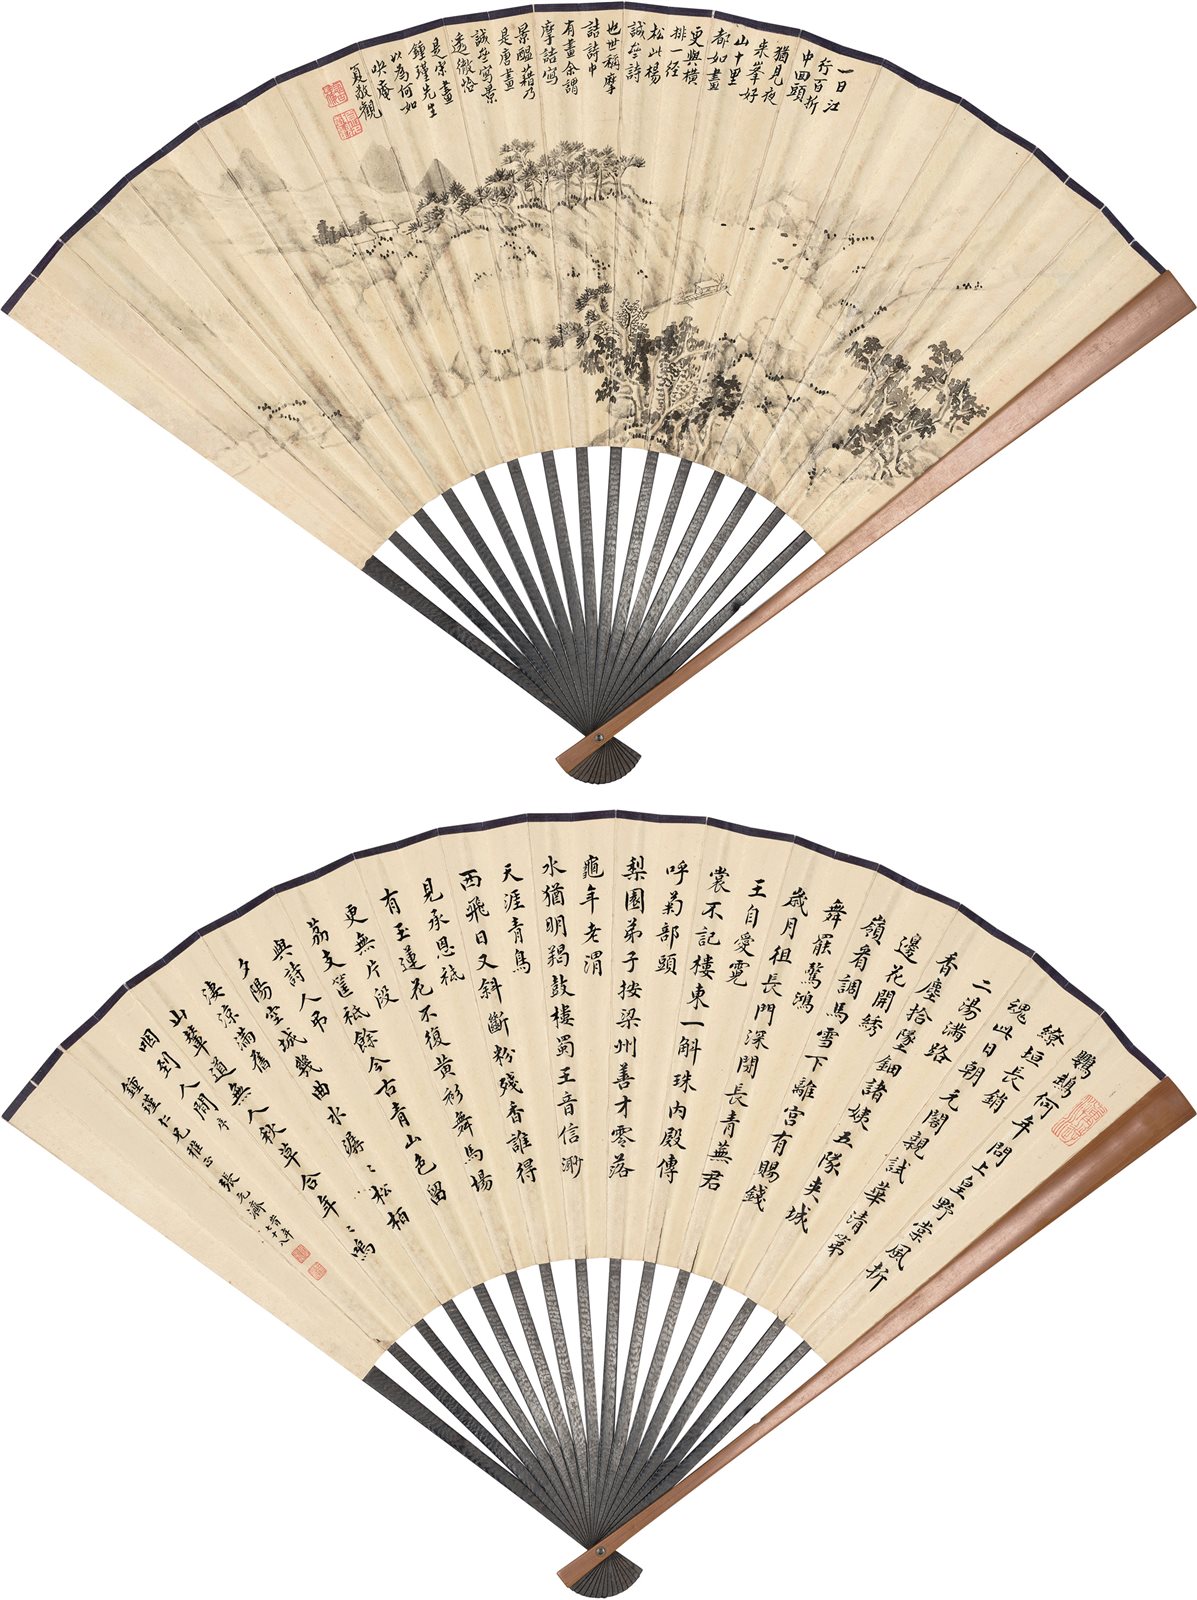 一日江
行百折
中回頭
猶見夜
來峯好
山十里
都如畫
更與橫
排一径
松此楊
誠齋詩
也世稱摩
詰詩中
有畫余謂
摩詰寫
景醞藉乃
是唐畫
誠齋寫景
透徹恰
是宋畫
鍾瑾先生
以為何如
映庵
夏敬觀
鸚鵡何年問上皇野棠風折
繚垣長銷
魂此日朝元閣親試華清第
二湯滿路
香塵拾墜鈿諸姨五隊夾城
邊花開綉
嶺看調馬雪下離宮有賜錢
舞罷驚鴻
歲月徂長門深閉長青蕪君
王自愛霓
裳不記樓東一斛珠內殿傳
呼菊部頭
梨園弟子按梁州善才零落
龜年老渭
水猶明羯鼓樓蜀王音信渺
天涯青鳥
西飛日又斜斷粉殘香誰得
見承恩祇
有玉蓮花不復黃衫舞馬場
更無片段
荔支筐祇餘今古青山色留
與詩人弔
夕陽空城幾曲水潺〻松柏
淒涼滿舊
山輦道無人秋草合年〻嗚
咽到人間
鍾瑾仁兄雅正 張元濟 時年七十八